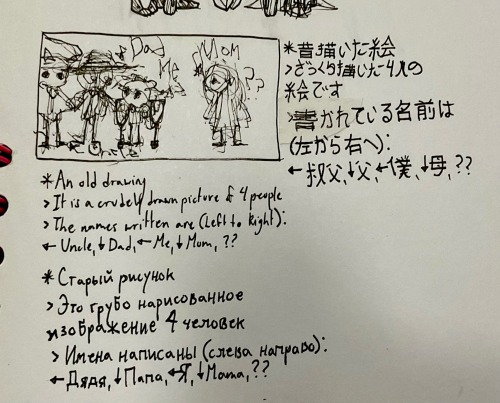 Dad
Me
Mom
??
Uncle
*昔描いた絵
>ざっくり描いた4人の
絵です
>書かれている名前は
(左から右へ):
←叔父,↓父,←僕,↓母,??
*An old drawing
>It is a crudely drawn picture of 4 people
>The names written are (Left to Right):
←Uncle,↓Dad,←Me,↓Mum,??
*Старый рисунок
>Это грубо нарисованное
изображение 4 человек
>Имена написаны (слева направо):
←Дядя,↓Папа,←Я,↓Мама,??